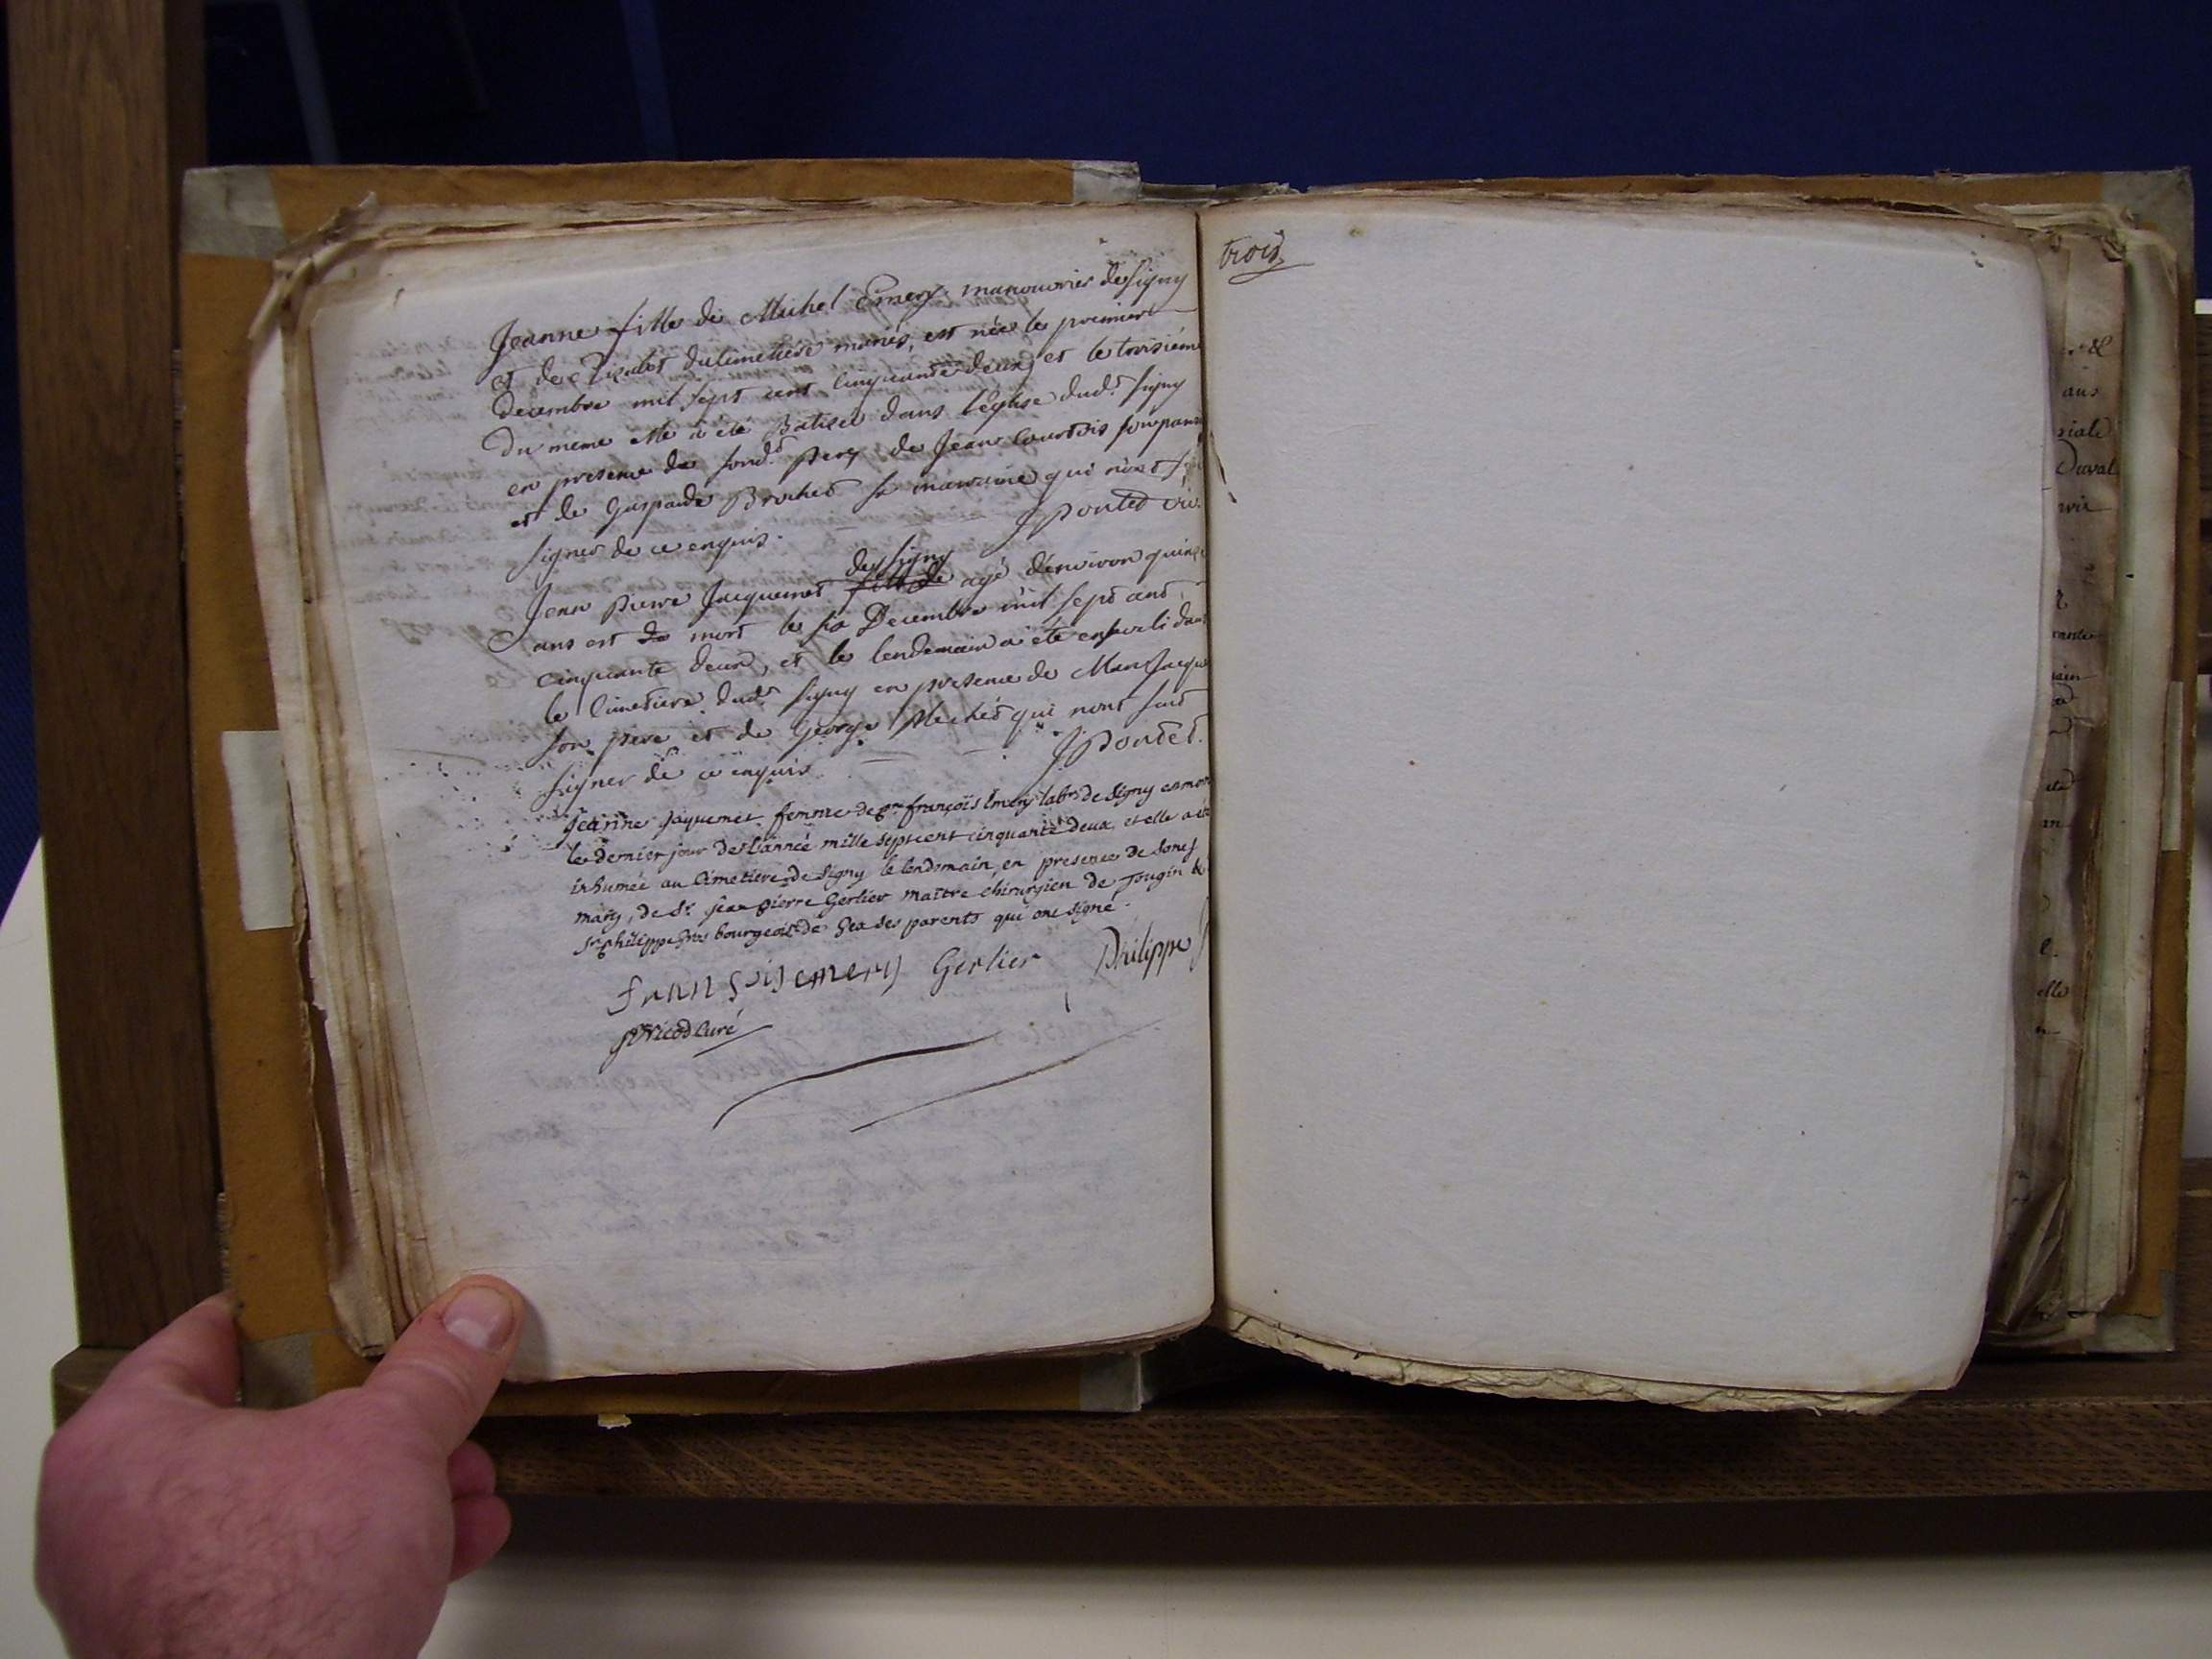 Jeanne fille de Michel Emery manouvrier de Signy
et de du Cimetiere mariés, est née le premier
decembre mil sept cent cinquante deux et le troisiém
du meme elle a été Batisée dans l'église dud.t Signy
en presence de sond.t Pere de Jean Courtois son para
et de Gasparde Brochet sa maraine qui n'ont sçu
signer de ce enquis. J Pontet vic.
de Signy
Jean Pierre Jacquemet fille de agé d'environ quinze
ans est de mort le six Decembre mil sept cent
cinquante deux, et le lendemain a été enseveli dans
le Cimetiere dud.t Signy en presence de Jacque
son pere et de George Mechet qui n'ont sceut
signer de ce enquis J Pontet.
Jeanne Jaquemet femme de Sr. françois Emery lab.r de Signy es mor
le dernier jour de l'année mille septcent cinquante deux, et elle a été
inhumée au Cimetiere de Signy le lendemain, en presence de Sones
mary, de Sr. jean pierre Gerlier maître chirurgien de Tougin &
Sr philippe bourgeois de Gex ses parents qui ont signé.
franSois emery Gerlier Philippe
Nicod Curé
trois
&
aus
riale
Duval
elle